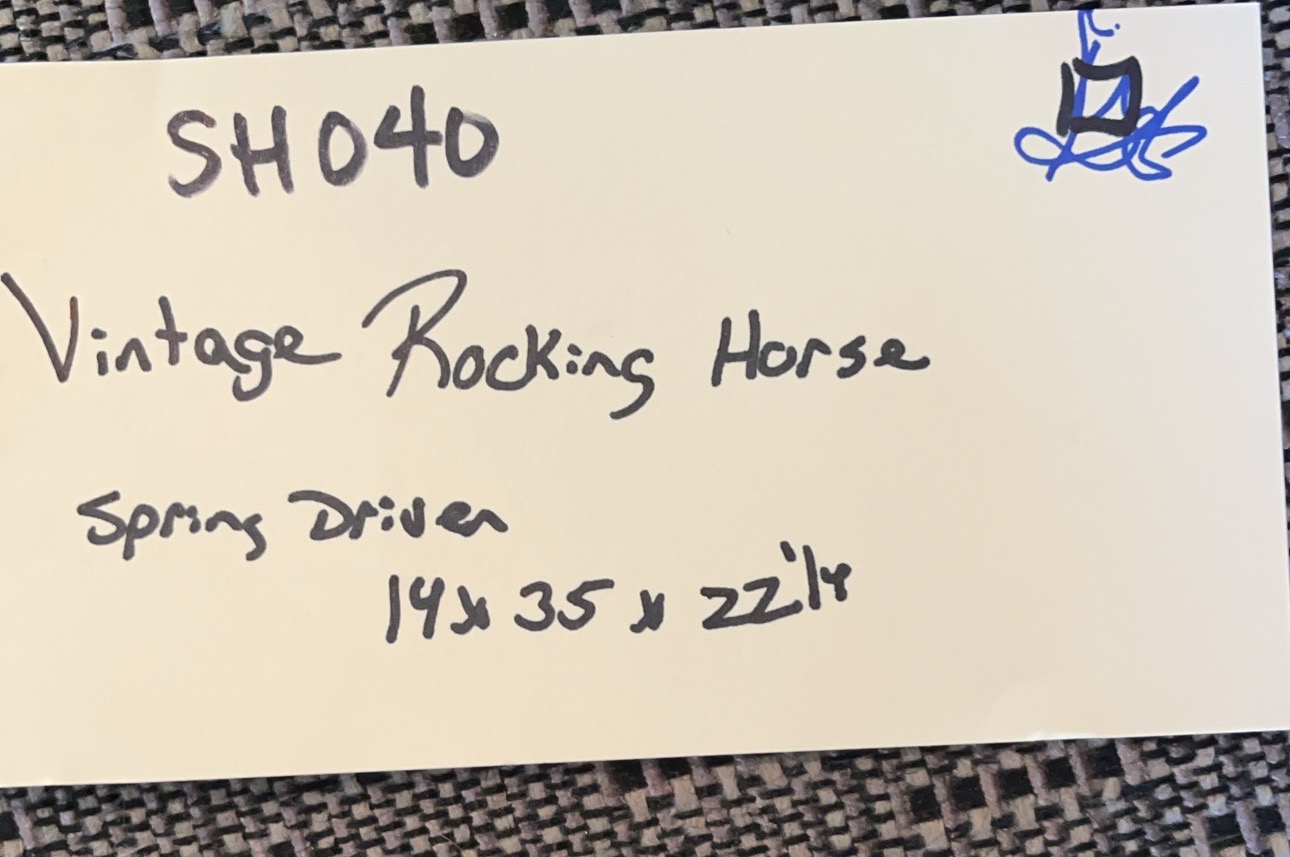 SH040
Vintage Rocking Horse
Spring Driven
14 x 35 x 22 1/4